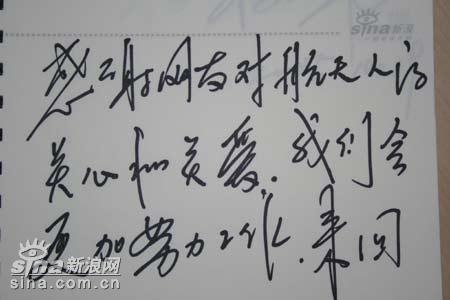 sina新浪
感谢网友对航天人的
关心和关爱.我们会
更加努力工作.来回
sina新浪网
sina.com.cn